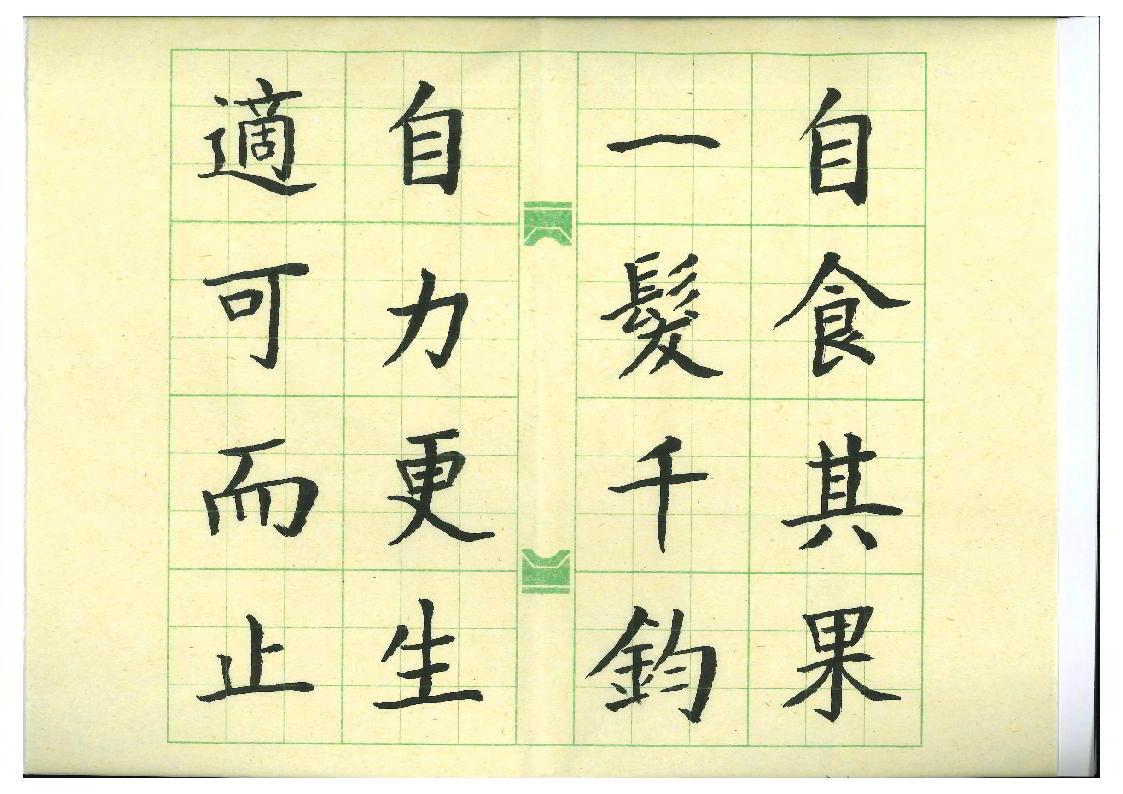 自食其果
一髮千鈞
自力更生
適可而止